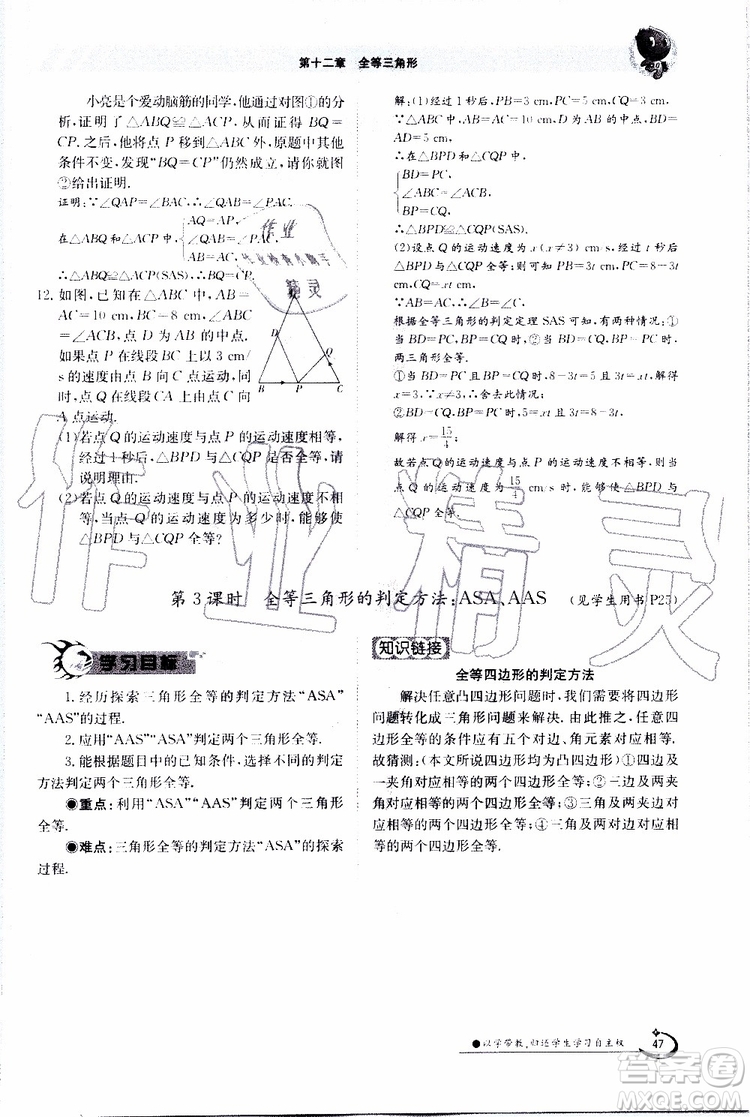 第十二章 全等三角形
小亮是个爱动脑筋的同学,他通过对图①的分
析,证明了△ABQ≌△ACP,从而证得BQ=
CP.之后,他将点P移到△ABC外,原题中其他
条件不变,发现“BQ=CP”仍然成立,请你就图
②给出证明.
证明:∵∠QAP=∠BAC,∴∠QAB=∠PAC.
在△ABQ和△ACP中,
AQ=AP,
∠QAB=∠PAC,
AB=AC,
∴△ABQ≌△ACP(SAS),∴BQ=CP.
12. 如图,已知△ABC中,AB=
AC=10 cm,BC=8 cm,
点D为AB的中点.
如果点P在线段BC上以3 cm/
s的速度由点B向C点运动,同
时,点Q在线段CA上由点C向
A点运动.
(1)若点Q的运动速度与点P的运动速度相等,
经过1秒后,△BPD与△CQP是否全等,请
说明理由;
(2)若点Q的运动速度与点P的运动速度不相
等,当点Q的运动速度为多少时,能够使
△BPD与△CQP全等?
A
D
Q
B P C
解:(1)经过1秒后,PB=3 cm,PC=5 cm,CQ=3 cm.
∵△ABC中,AB=AC,点D为AB的中点,
AD=5 cm.
∴在△BPD和△CQP中,
BD=PC,
∠ABC=∠ACB,
BP=CQ,
∴△BPD≌△CQP(SAS).
(2)设点Q的运动速度为x(x≠3) cm/s,经过t秒后
△BPD与△CQP全等,则可知PB=3t cm,PC=8-3t
cm,CQ=xt cm.
∵AB=AC,
∴∠B=∠C.
根据全等三角形的判定定理SAS可知,有两种情况:①
当BD=PC,BP=CQ时,②当BD=CQ,BP=PC时,
两三角形全等.
①当BD=PC且BP=CQ时,8-3t=5且3t=xt,解得
x=3,∵x≠3,∴舍去此情况;
②BD=CQ,BP=PC时,5=xt且3t=8-3t,
解得x=15/4;
故若点Q的运动速度与点P的运动速度不相等,则当
点Q的运动速度为15/4 cm/s时,能够使△BPD与
△CQP全等.
第3课时 全等三角形的判定方法:ASA、AAS (见学生用书P25)
学习目标
1.经历探索三角形全等的判定方法“ASA”
“AAS”的过程.
2.应用“ASA”“AAS”判定两个三角形全等.
3.能根据题目中的已知条件,选择适当的判定
方法判定两个三角形全等.
●重点:利用“ASA”“AAS”判定两个三角形
全等.
●难点:三角形全等的判定方法“ASA”的探索
过程.
知识链接
全等四边形的判定方法
解决任意凸四边形问题时,我们需要将四边形
问题转化成三角形问题来解决.由此推出,任意四
边形全等的条件应有五个对边、角元素对应相等.
故猜测:(本文所说四边形均为凸四边形)①四边及
一夹角对应相等的两个四边形全等;②三边及两夹
角对应相等的两个四边形全等;③三角及两邻边对
应相等的两个四边形全等;④三角及两对边对应相
等的两个四边形全等.
●以学带教,归还学生学习自主权
47
作业精灵
作业
精灵
答案圈
MXQE.COM